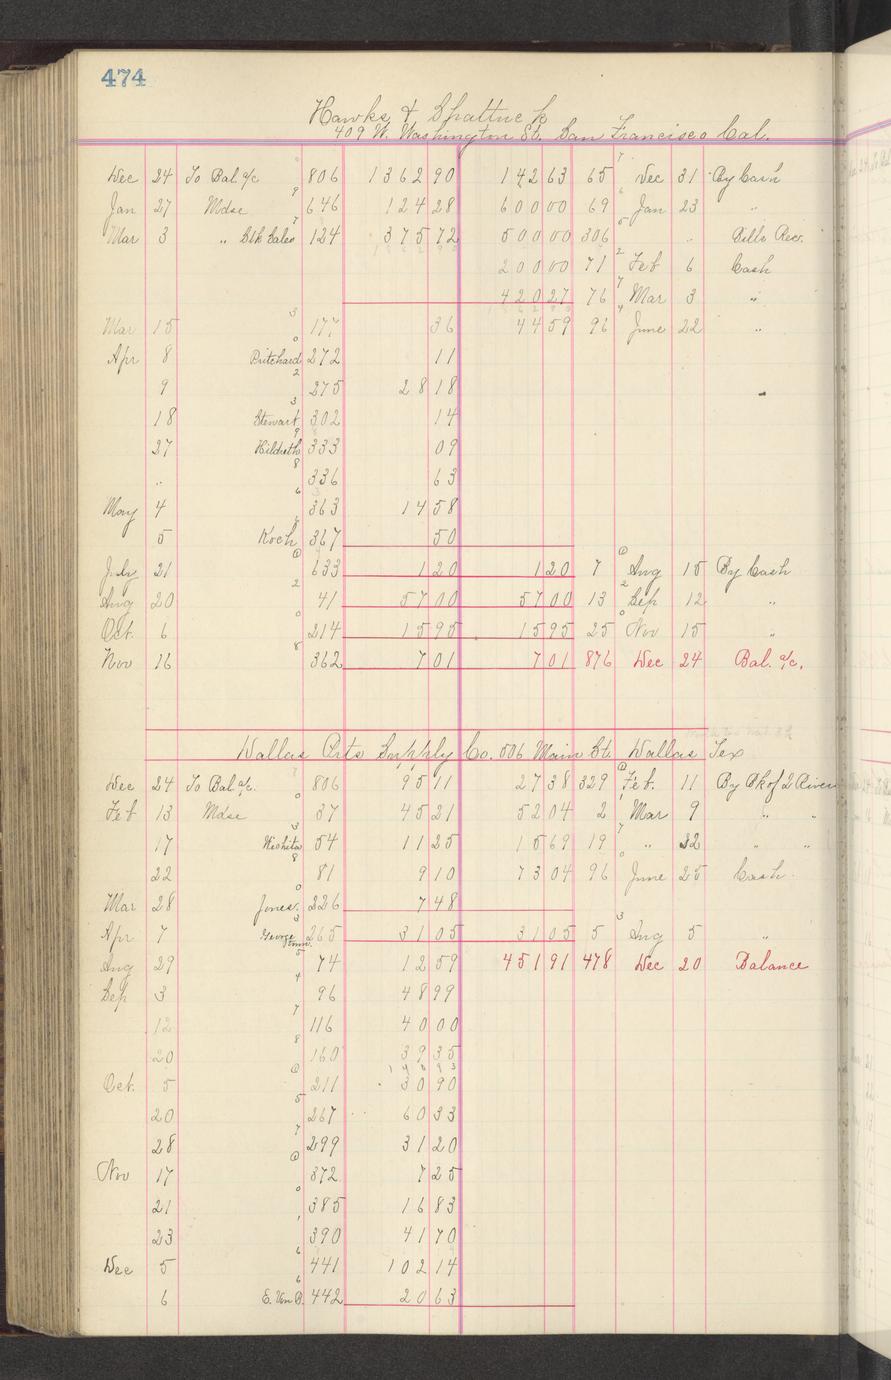 474
Hawks & Shattuck
409 W. Washington St. San Francisco Cal.
Dec 24 To Bal. a/c 806 1362 90 142 63 65 Dec 31 By Cash
Jan 27 Mdse 646 124 28 600 00 69 Jan 23 "
Mar 3 " Stk Sales 124 375 72 500 00 306 " Bills Rec.
200 00 71 Feb 6 Cash
420 27 76 Mar 3 "
Mar 15 177 36 44 59 96 June 22 "
Apr 8 Pritchard 272 11
9 275 28 18
18 Stewart 302 14
27 Hildreth 333 09
" 336 63
May 4 363 14 58
5 Koch 367 50
July 21 633 1 20 1 20 7 Aug 15 By Cash
Aug 20 41 57 00 57 00 13 Sep 12 "
Oct. 6 214 15 95 15 95 25 Nov 15 "
Nov 16 362 7 01 7 01 876 Dec 24 Bal. a/c.
Dallas Arts Supply Co. 506 Main St. Dallas Tex
Dec 24 To Bal a/c. 806 95 11 27 38 329 Feb. 11 By Bk of 2 Rivers
Feb 13 Mdse 37 45 21 52 04 2 Mar 9 " "
17 Wichita 54 11 25 15 69 19 " 32 " "
22 81 9 10 73 04 96 June 25 Cash
Mar 28 Jones. 226 7 48
Apr 7 George town. 265 31 05 31 05 5 Aug 5 "
Aug 29 74 12 59 451 91 478 Dec 20 Balance
Sep 3 96 48 99
12 116 40 00
20 160 39 35
Oct. 5 211 30 90
20 267 60 33
28 299 31 20
Nov 17 372 7 25
21 385 16 83
23 390 41 70
Dec 5 441 102 14
6 E. Von B. 442 20 63